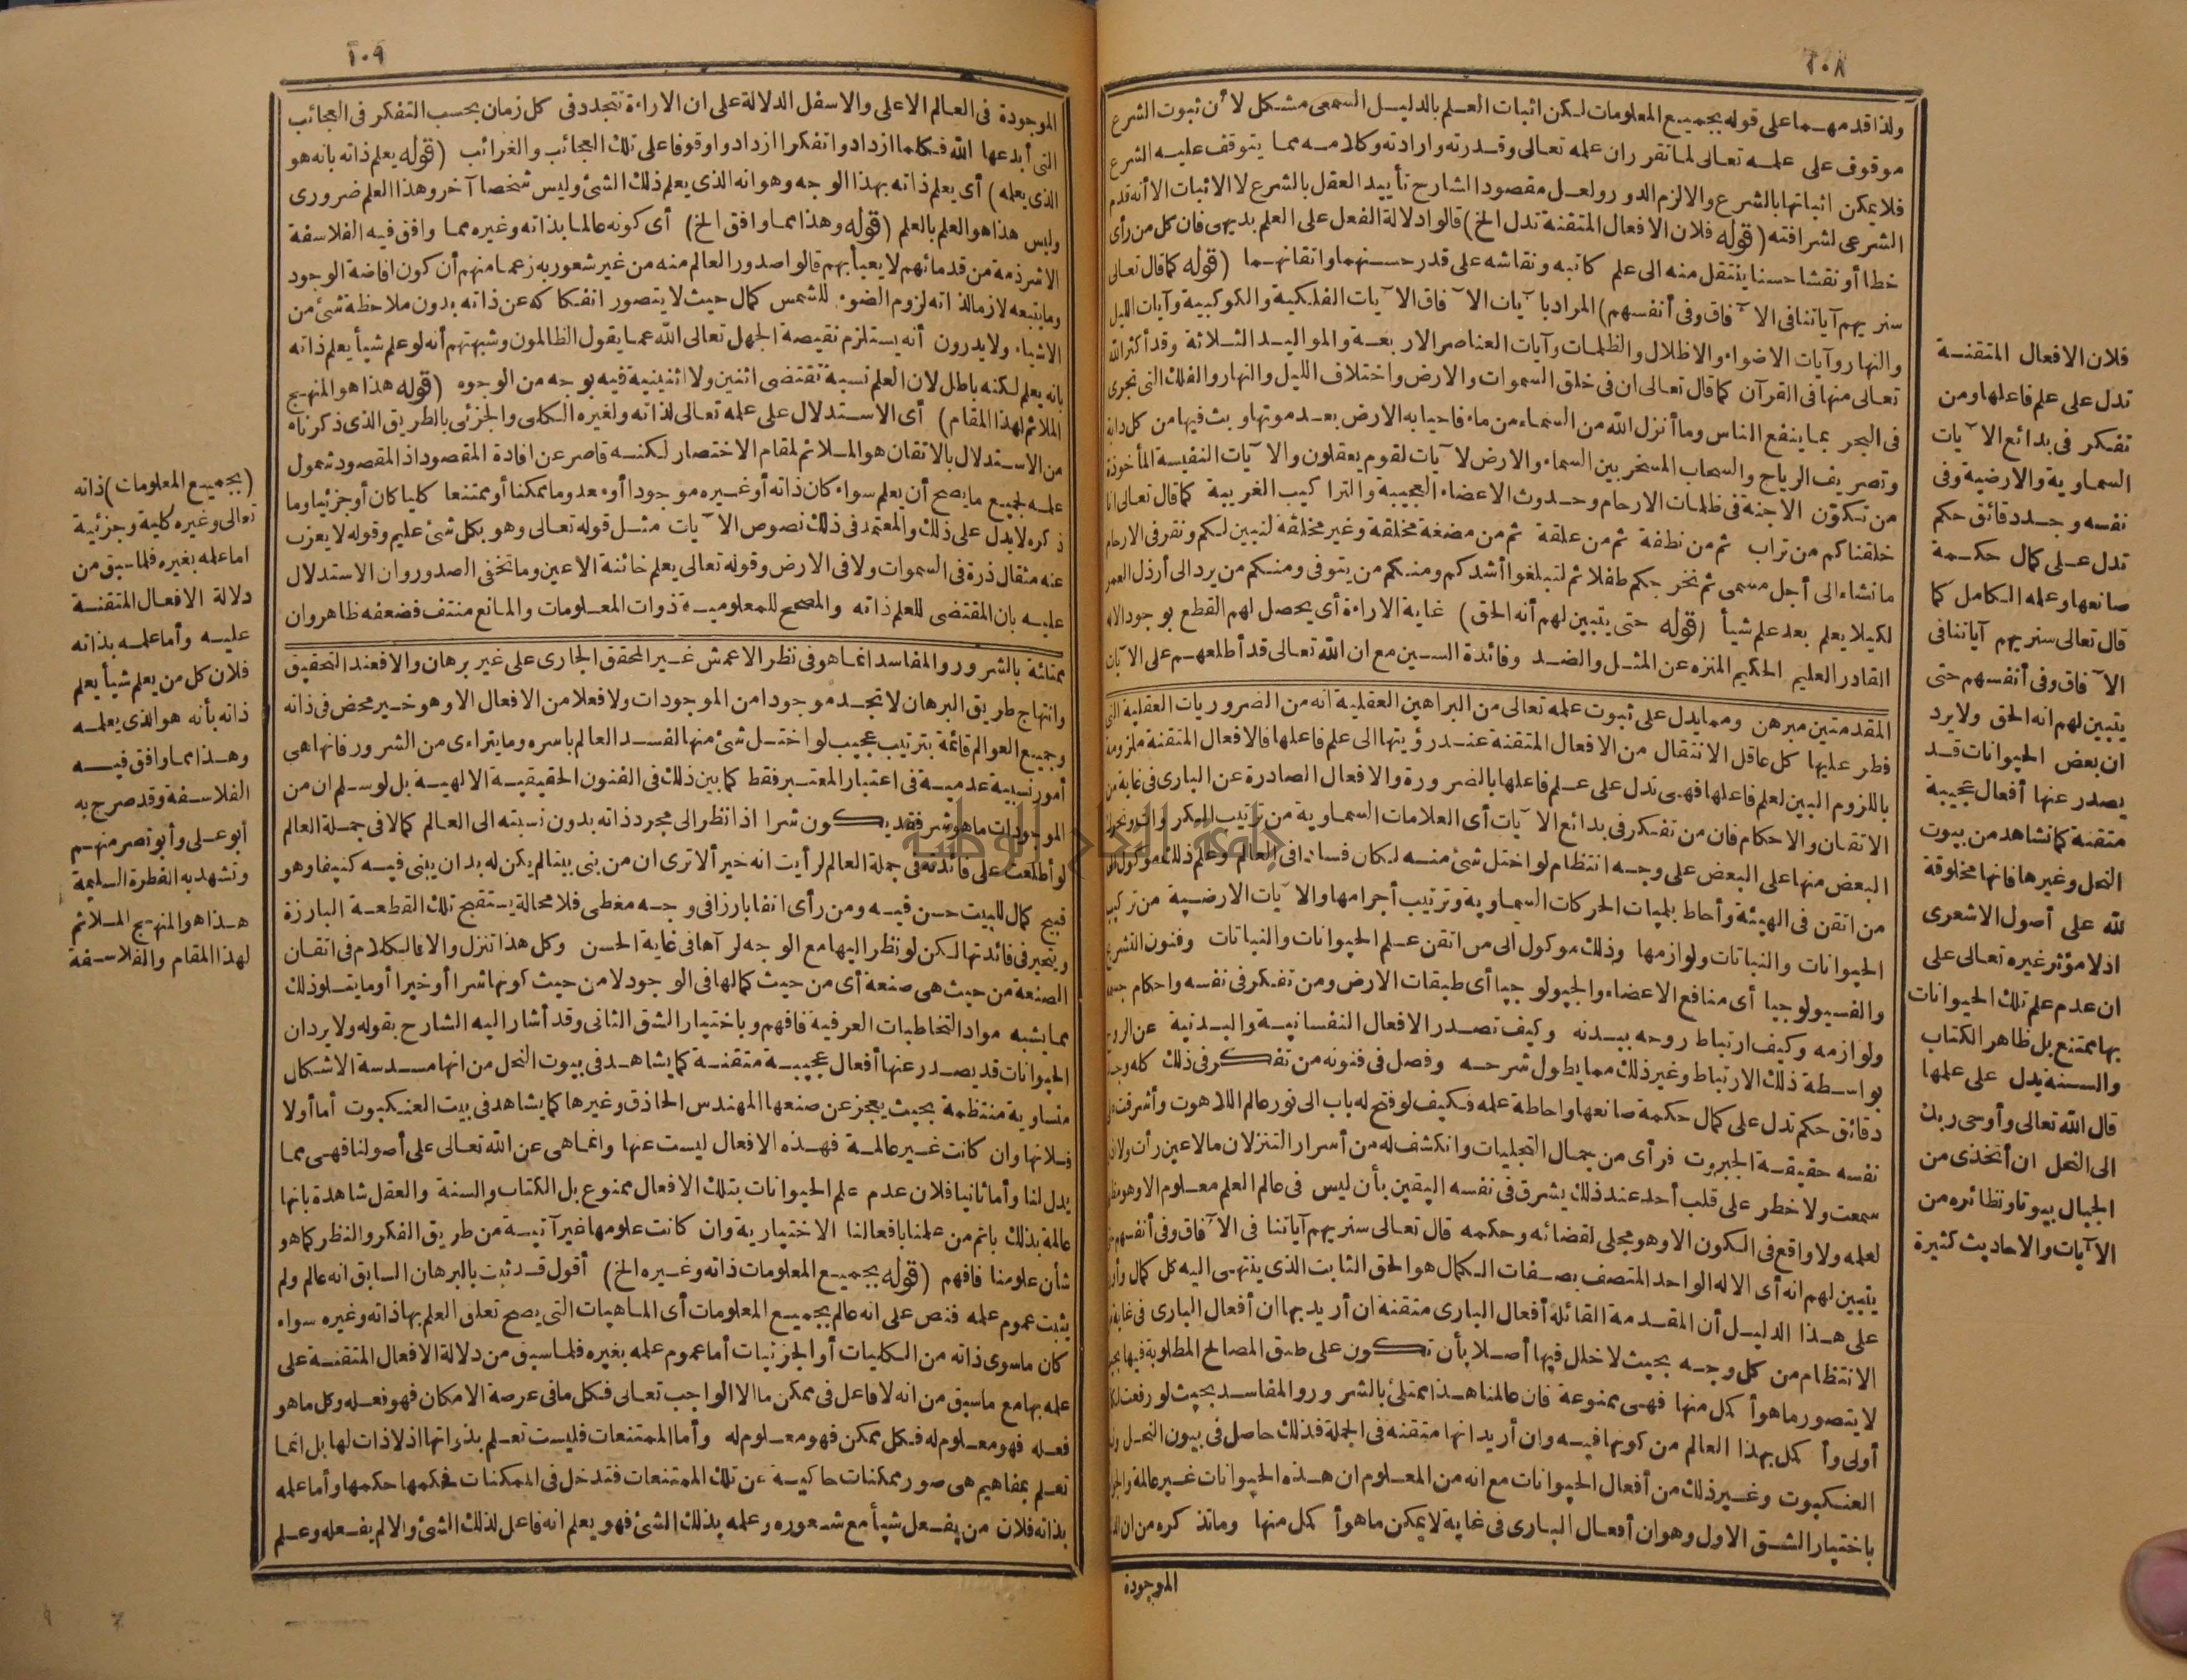 ٢٠٨
ولذا قدمهما على قوله بجميع المعلومات لكن اثبات العلم بالدليل السمعى مشكل لأن ثبوت الشرع
موقوف على علمه تعالى لما تقرران علمه تعالى وقدرته وارادته وكلامه مما يتوقف عليه الشرع
فلا يمكن اثباتها بالشرع والا لزم الدور ولعل مقصود الشارح تأييد العقل بالشرع لا الاثبات الا أنه قدم
الشرعى لشرافته (قوله فلان الافعال المتقنة تدل الخ) قالوا دلالة الفعل على العلم بديهى فان كل من رأى
خطا أو نقشا حسنا ينتقل منه الى علم كاتبه ونقاشه على قدر حسنهما واتقانهما (قوله كما قال تعالى
سنريهم آياتنا فى الآفاق وفى أنفسهم) المراد بآيات الآفاق الآيات الفلكية والكوكبية وآيات الليل
والنهار وآيات الاضواء والاظلال والظلمات وآيات العناصر الاربعة والمواليد الثلاثة وقد أكثر الله
تعالى منها فى القرآن كما قال تعالى ان فى خلق السموات والارض واختلاف الليل والنهار والفلك التى تجرى
فى البحر بما ينفع الناس وما أنزل الله من السماء من ماء فاحيا به الارض بعد موتها وبث فيها من كل دابة
وتصريف الرياح والسحاب المسخر بين السماء والارض لآيات لقوم يعقلون والآيات النفيسة المأخوذة
من تكون الاجنة فى ظلمات الارحام وحدوث الاعضاء العجيبة والتراكيب الغريبة كما قال تعالى انا
خلقناكم من تراب ثم من نطفة ثم من علقة ثم من مضغة مخلقة وغير مخلقة لنبين لكم ونقر فى الارحام
ما نشاء الى أجل مسمى ثم نخرجكم طفلا ثم لتبلغوا أشدكم ومنكم من يتوفى ومنكم من يرد الى أرذل العمر
لكيلا يعلم بعد علم شيأ (قوله حتى يتبين لهم أنه الحق) غاية الاراءة أى يحصل لهم القطع بوجود الاله
القادر العليم الحكيم المنزه عن المثل والضد وفائدة السين مع ان الله تعالى قد أطلعهم على الآيات
المقدمتين مبرهن ومما يدل على ثبوت علمه تعالى من البراهين العقلية أنه من الضروريات العقلية التى
فطر عليها كل عاقل الانتقال من الافعال المتقنة عند رؤيتها الى علم فاعلها فالافعال المتقنة ملزومة
باللزوم البين لعلم فاعلها فهى تدل على علم فاعلها بالضرورة والافعال الصادرة عن البارى فى غاية من
الاتقان والاحكام فان من تفكر فى بدائع الآيات أى العلامات السماوية من ترتيب
البعض منها على البعض على وجه انتظام لو اختل شئ منه لكان فسادا فى العالم وعلم ذلك موكول
من اتقن فى الهيئة وأحاط بلميات الحركات السماوية وترتيب أجرامها والآيات الارضية من تركيب
الحيوانات والنباتات ولوازمها وذلك موكول الى من اتقن علم الحيوانات والنباتات وفنون التشريح
والفسيولوجيا أى منافع الاعضاء والجيولوجيا أى طبقات الارض ومن تفكر فى نفسه واحكام جسمه
ولوازمه وكيف ارتباط روحه ببدنه وكيف تصدر الافعال النفسانية والبدنية عن الروح
بواسطة ذلك الارتباط وغير ذلك مما يطول شرحه وفصل فى فنونه من تفكر فى ذلك كله وجد
دقائق حكم تدل على كمال حكمة صانعها واحاطة علمه فكيف لو فتح له باب الى نور عالم اللاهوت وأشرقت
نفسه حقيقة الجبروت فرأى من جمال التجليات وانكشف له من أسرار التنزلات مالاعين رأت ولا اذن
سمعت ولا خطر على قلب أحد عند ذلك يشرق فى نفسه اليقين بأن ليس فى عالم العلم معلوم الا وهو مظهر
لعلمه ولا واقع فى الكون الا وهو مجلى لقضائه وحكمه قال تعالى سنريهم آياتنا فى الآفاق وفى أنفسهم حتى
يتبين لهم انه أى الاله الواحد المتصف بصفات الكمال هو الحق الثابت الذى ينتهى اليه كل كمال
على هذا الدليل أن المقدمة القائلة أفعال البارى متقنة ان أريد بها ان أفعال البارى فى غاية
الانتظام من كل وجه بحيث لا خلل فيها أصلا بأن تكون على طبق المصالح المطلوبة فيها بحيث
لا يتصور ما هو أكمل منها فهى ممنوعة فان عالمنا هذا ممتلئ بالشرور والمفاسد بحيث لو رفعت
أولى وأكمل بهذا العالم من كونها فيه وان أريد انها متقنة فى الجملة فذلك حاصل فى بيوت النحل
العنكبوت وغير ذلك من أفعال الحيوانات مع انه من المعلوم ان هذه الحيوانات غير عالمة
باختيار الشق الاول وهو ان أفعال البارى فى غاية لا يمكن ما هو أكمل منها وما تذكره من ان
الموجودة
فلان الافعال المتقنة
تدل على علم فاعلها ومن
تفكر فى بدائع الآيات
السماوية والارضية وفى
نفسه وجد دقائق حكم
تدل على كمال حكمة
صانعها وعلمه الكامل كما
قال تعالى سنريهم آياتنا فى
الآفاق وفى أنفسهم حتى
يتبين لهم انه الحق ولا يرد
ان بعض الحيوانات قد
يصدر عنها أفعال عجيبة
متقنة كما نشاهد من بيوت
النحل وغيرها فانها مخلوقة
لله على أصول الاشعرى
اذ لا مؤثر غيره تعالى على
ان عدم علم تلك الحيوانات
بها ممتنع بل ظاهر الكتاب
والسنة يدل على علمها
قال الله تعالى وأوحى ربك
الى النحل ان أتخذى من
الجبال بيوتا ونظائره من
الآيات والاحاديث كثيرة
٢٠٩
الموجودة فى العالم الاعلى والاسفل الدلالة على ان الاراءة تتجدد فى كل زمان بحسب التفكر فى العجائب
التى أبدعها الله فكلما ازدادوا تفكرا ازدادوا وقوفا على تلك العجائب والغرائب (قوله يعلم ذاته بانه هو
الذى يعلمه) أى يعلم ذاته بهذا الوجه وهو انه الذى يعلم ذلك الشئ وليس شخصا آخر وهذا العلم ضرورى
وليس هذا هو العلم بالعلم (قوله وهذا مما وافق الخ) أى كونه عالما بذاته وغيره مما وافق فيه الفلاسفة
الا شرذمة من قدمائهم لا يعبأ بهم قالوا صدور العالم منه من غير شعور به زعما منهم أن كون افاضة الوجود
وما يتبعه لازما لذاته لزوم الضوء للشمس كمال حيث لا يتصور انفكاكه عن ذاته بدون ملاحظة شئ من
الاشياء ولا يدرون أنه يستلزم نقيصة الجهل تعالى الله عما يقول الظالمون وشبهتهم أنه لو علم شيأ يعلم ذاته
بانه يعلم لكنه باطل لان العلم نسبة تقتضى اثنين ولا اثنينية فيه بوجه من الوجوه (قوله هذا هو المنهج
الملائم لهذا المقام) أى الاستدلال على علمه تعالى لذاته ولغيره الكلى والجزئى بالطريق الذى ذكرناه
من الاستدلال بالاتقان هو الملائم لمقام الاختصار لكنه قاصر عن افادة المقصود اذ المقصود شمول
علمه لجميع ما يصح أن يعلم سواء كان ذاته أو غيره موجودا أو معدوما ممكنا أو ممتنعا كليا كان أو جزئيا وما
ذكره لا يدل على ذلك والمعتمد فى ذلك نصوص الآيات مثل قوله تعالى وهو بكل شئ عليم وقوله لا يعزب
عنه مثقال ذرة فى السموات ولا فى الارض وقوله تعالى يعلم خائنة الاعين وما تخفى الصدور وان الاستدلال
عليه بان المقتضى للعلم ذاته والمصحح للمعلومية ذوات المعلومات والمانع منتف فضعفه ظاهر وان
ممتلئة بالشرور والمفاسد انما هو فى نظر الاعمش غير المحقق الجارى على غير برهان والا فعند التحقيق
وانتهاج طريق البرهان لا تجد موجودا من الموجودات ولا فعلا من الافعال الا وهو خير محض فى ذاته
وجميع العوالم قائمة بترتيب عجيب لو اختل شئ منها لفسد العالم باسره وما يتراءى من الشرور فانها هى
أمور نسبية عدمية فى اعتبار المعتبر فقط كما بين ذلك فى الفنون الحقيقية الالهية بل لو سلم ان من
الموجودات ما هو شر فقد يكون شرا اذا نظر الى مجرد ذاته بدون نسبته الى العالم كمالا فى جملة العالم
لو أطلعت على فائدته فى جملة العالم لرأيت انه خير ألا ترى ان من بنى بيتا لم يكن له بد ان يبنى فيه كنيفا وهو
قبيح كمال للبيت حسن فيه ومن رأى انفا بارزا فى وجه مغطى فلا محالة يستقبح تلك القطعة البارزة
ويتحير فى فائدتها لكن لو نظر اليها مع الوجه لرآها فى غاية الحسن وكل هذا تنزل والا فالكلام فى اتقان
الصنعة من حيث هى صنعة أى من حيث كمالها فى الوجود لا من حيث كونها شرا أو خيرا أو ما يتلو ذلك
مما يشبه مواد التخاطبات العرفية فافهم وباختيار الشق الثانى وقد أشار اليه الشارح بقوله ولا يرد ان
الحيوانات قد يصدر عنها أفعال عجيبة متقنة كما يشاهد فى بيوت النحل من انها مسدسة الاشكال
متساوية منتظمة بحيث يعجز عن صنعها المهندس الحاذق وغيرها كما يشاهد فى بيت العنكبوت أما أولا
فلانها وان كانت غير عالمة فهذه الافعال ليست عنها وانما هى عن الله تعالى على أصولنا فهى مما
يدل لنا وأما ثانيا فلان عدم علم الحيوانات بتلك الافعال ممنوع بل الكتاب والسنة والعقل شاهدة بانها
عالمة بذلك باتم من علمنا بافعالنا الاختيارية وان كانت علومها غير آتية من طريق الفكر والنظر كما هو
شأن علومنا فافهم (قوله بجميع المعلومات ذاته وغيره الخ) أقول قد ثبت بالبرهان السابق انه عالم ولم
يثبت عموم علمه فنص على انه عالم بجميع المعلومات أى الماهيات التى يصح تعلق العلم بها ذاته وغيره سواء
كان ما سوى ذاته من الكليات أو الجزئيات أما عموم علمه بغيره فلما سبق من دلالة الافعال المتقنة على
علمه بها مع ما سبق من انه لا فاعل فى ممكن ما الا الواجب تعالى فكل ما فى عرصة الامكان فهو فعله وكل ما هو
فعله فهو معلوم له فكل ممكن فهو معلوم له وأما الممتنعات فليست تعلم بذواتها اذ لا ذات لها بل انما
تعلم بمفاهيم هى صور ممكنات حاكية عن تلك الممتنعات فتدخل فى الممكنات فحكمها حكمها وأما علمه
بذاته فلان من يفعل شيأ مع شعوره وعلمه بذلك الشئ فهو يعلم انه فاعل لذلك الشئ والا لم يفعله وعلم
(بجميع المعلومات) ذاته
تعالى وغيره كلية وجزئية
اما علمه بغيره فلما سبق من
دلالة الافعال المتقنة
عليه وأما علمه بذاته
فلان كل من يعلم شيأ يعلم
ذاته بأنه هو الذى يعلمه
وهذا مما وافق فيه
الفلاسفة وقد صرح به
أبو على وأبو نصر منهم
وتشهد به الفطرة السليمة
هذا هو المنهج الملائم
لهذا المقام والفلاسفة
جامعة النجاح الوطنية